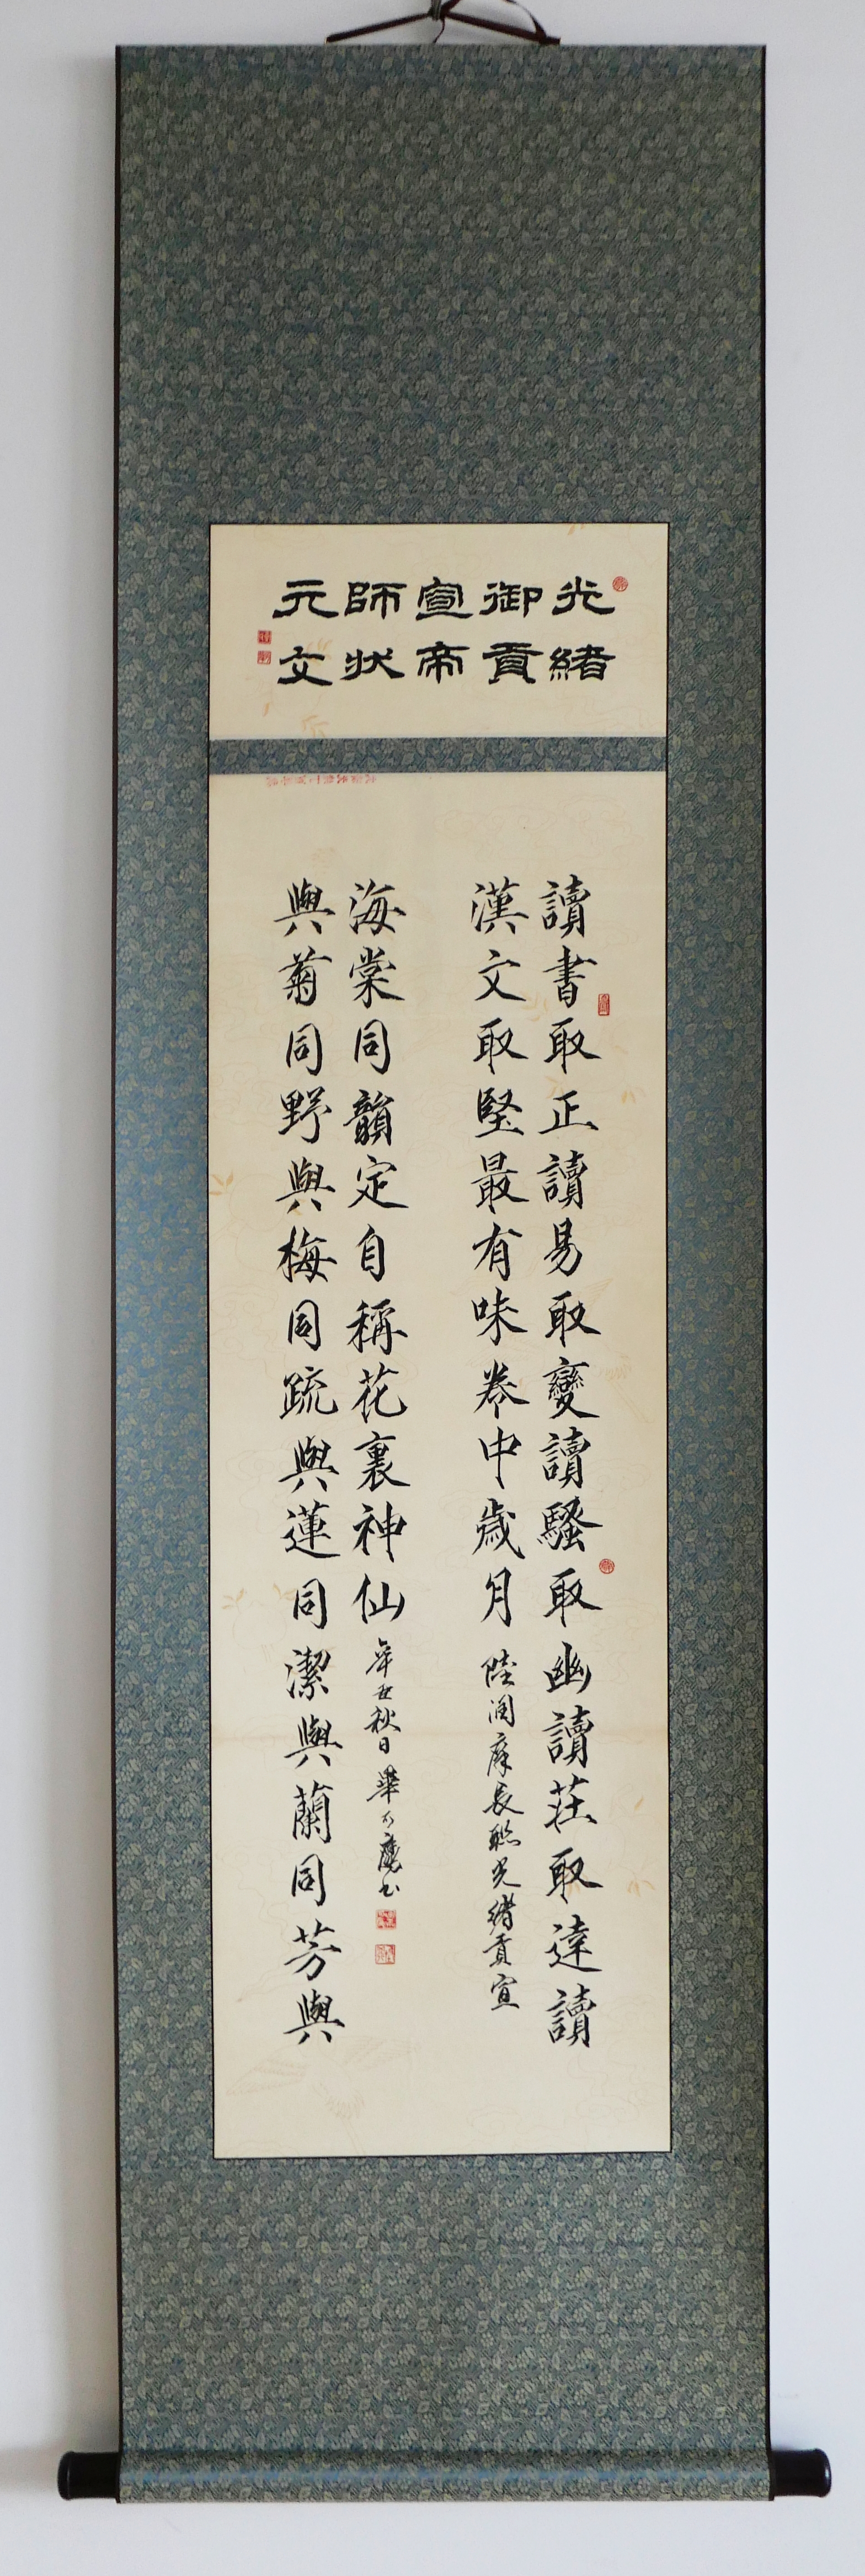 光緒
御貢
宣帝
師狀
元文
讀書取正讀易取變讀騷取幽讀莊取達讀
漢文取堅最有味卷中歲月 陸潤庠長聯光緒貢宣
與菊同野與梅同疏與蓮同潔與蘭同芳與
海棠同韻定自稱花裏神仙 辛丑秋日 畢